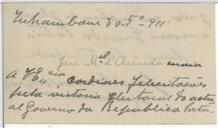 Inhambane 30-5º-911
José M.el d'Azevedo envia
A V.Ex.cia cordiaes felicitações
pela victoria eleitoral do actu
al Governo da Republica Portu